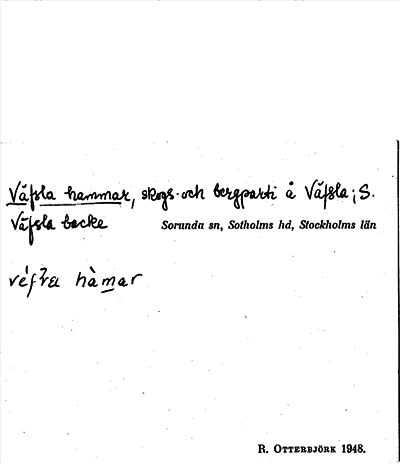 Väfsla hammar, skogs- och bergparti å Väfsla; S.
Väfsla backe Sorunda sn, Sotholms hd, Stockholms län
hàmar
R. OTTERBJÖRK 1948.